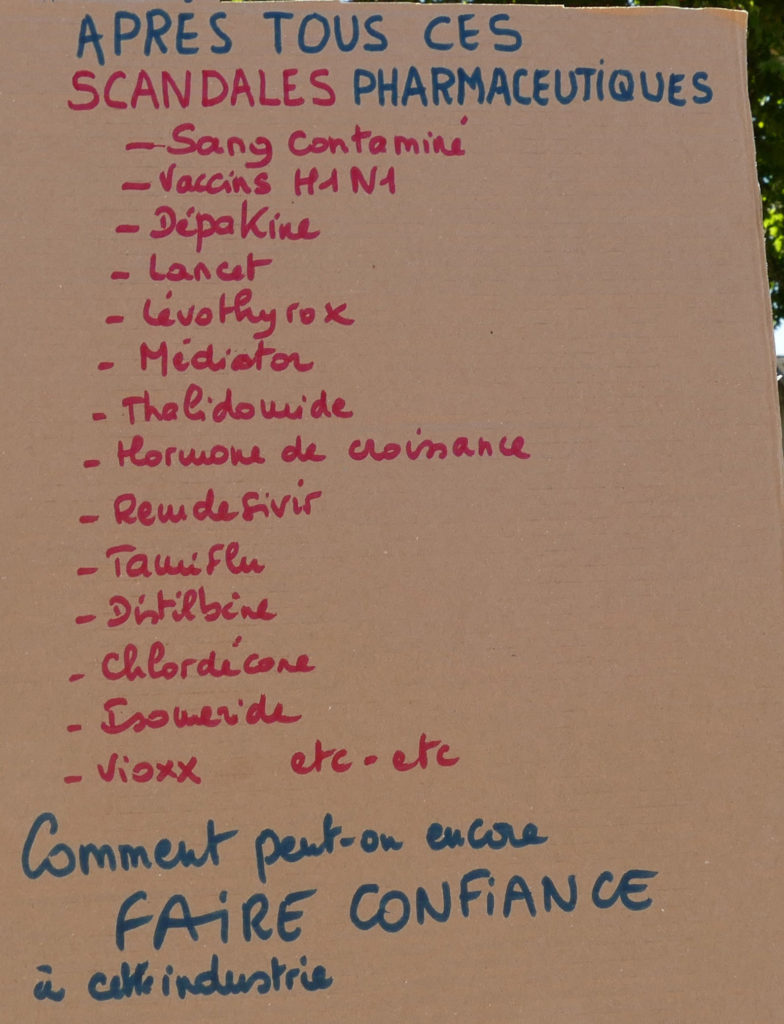 APRÈS TOUS CES
SCANDALES PHARMACEUTIQUES
- Sang contaminé
- Vaccins H1N1
- Dépakine
- Lancet
- Lévothyrox
- Médiator
- Thalidomide
- Hormone de croissance
- Remdesivir
- Tamiflu
- Distilbène
- Chlordécone
- Isomeride
- Vioxx etc - etc
Comment peut-on encore
FAIRE CONFIANCE
à cette industrie